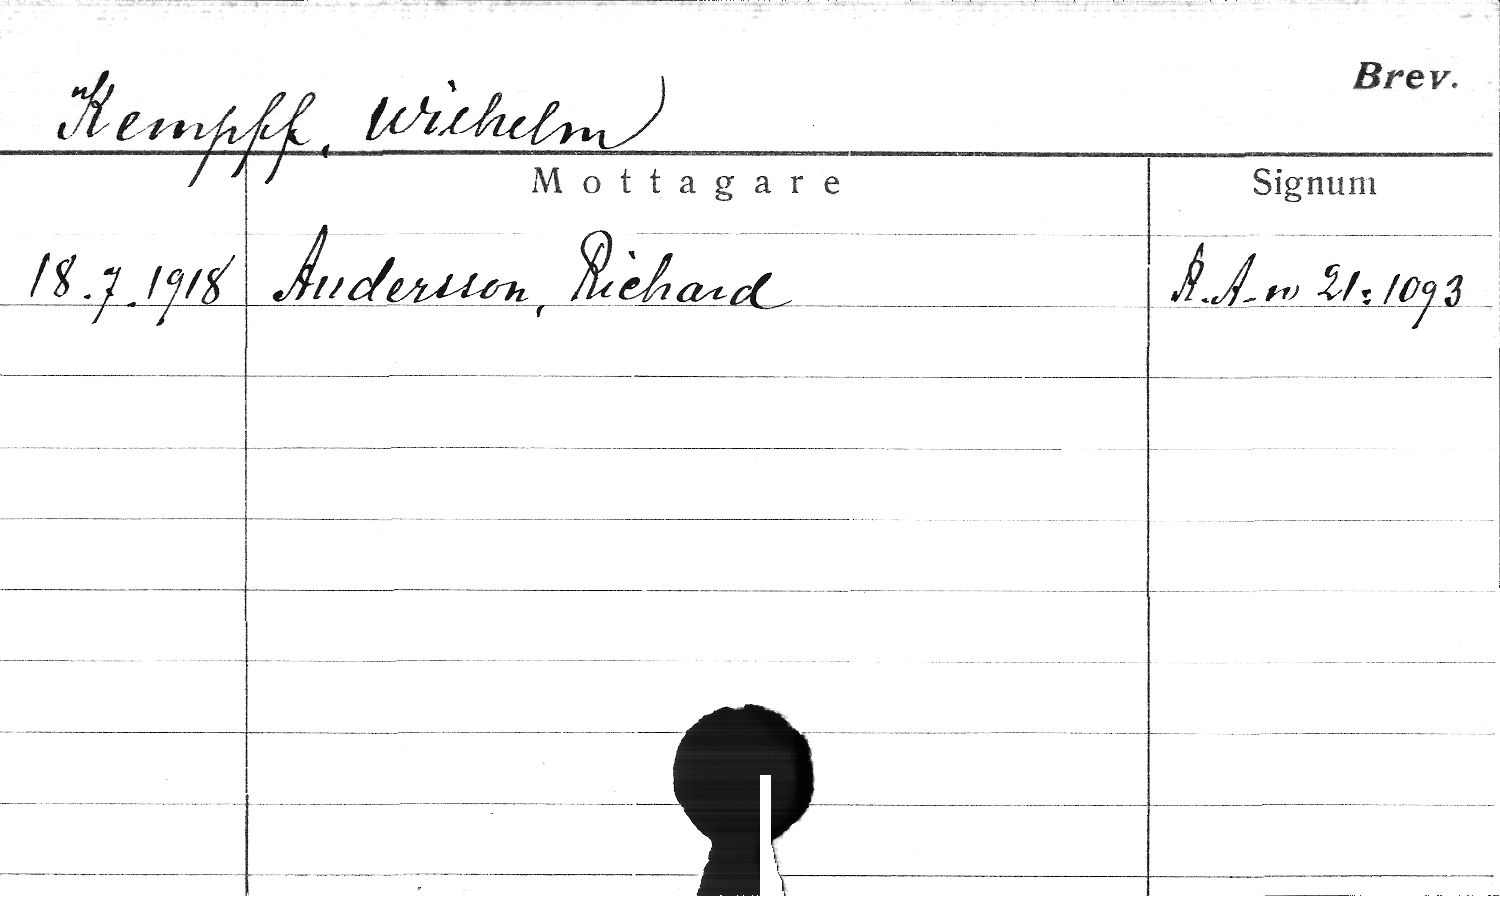 Brev.
Kempff, Wilhelm
Mottagare Signum
18.7.1918 Andersson, Richard R.A-n 21:1093